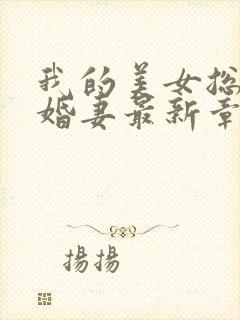 我的美女总
婚妻最新章
揚揚